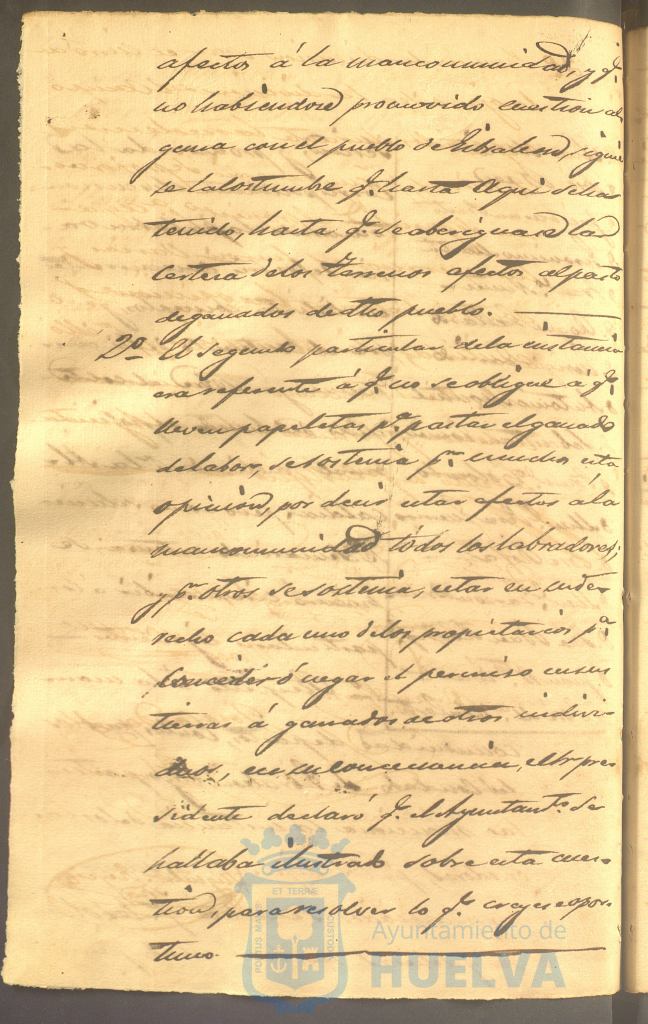 afectos á la mancomunidad, y q.
no habiendose promovido cuestion al
guna con el pueblo de Gibraleon, sigui
se la costumbre q. hasta aqui se ha
tenido, hasta q. se aberiguase la
certera de los terrenos afectos al pasto
de ganados de dho pueblo.
2º El segundo particular de la instancia
era referente á q. no se obligue á q.
lleven papeletas pª. pastar el ganado
de labor, se sostenia pr. muchos esta
opinion, por decir estar afectos á la
mancomunidad tódos los labradores;
y pr. otros se sostenia, estar en su de
recho cada uno de los propietarios pª.
conceder ó negar el permiso en sus
tierras á ganados de otros indivi
duos, en su consecuencia, el Sr. pre
sidente declaró q. el Ayuntamto. se
hallaba ilustrado sobre esta cues
tion, para resolver lo q. creyese opor
tuno.
PORTUS MARIS ET TERRÆ CUSTODIA
Ayuntamiento de
HUELVA